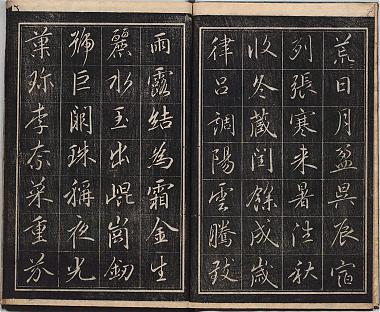 荒日月盈昃辰宿
列張寒来暑往秋
收冬藏閏餘成歲
律吕調陽雲騰致
雨露結為霜金生
麗水玉出崐崗釼
號巨闕珠稱夜光
菓珍李柰菜重芥